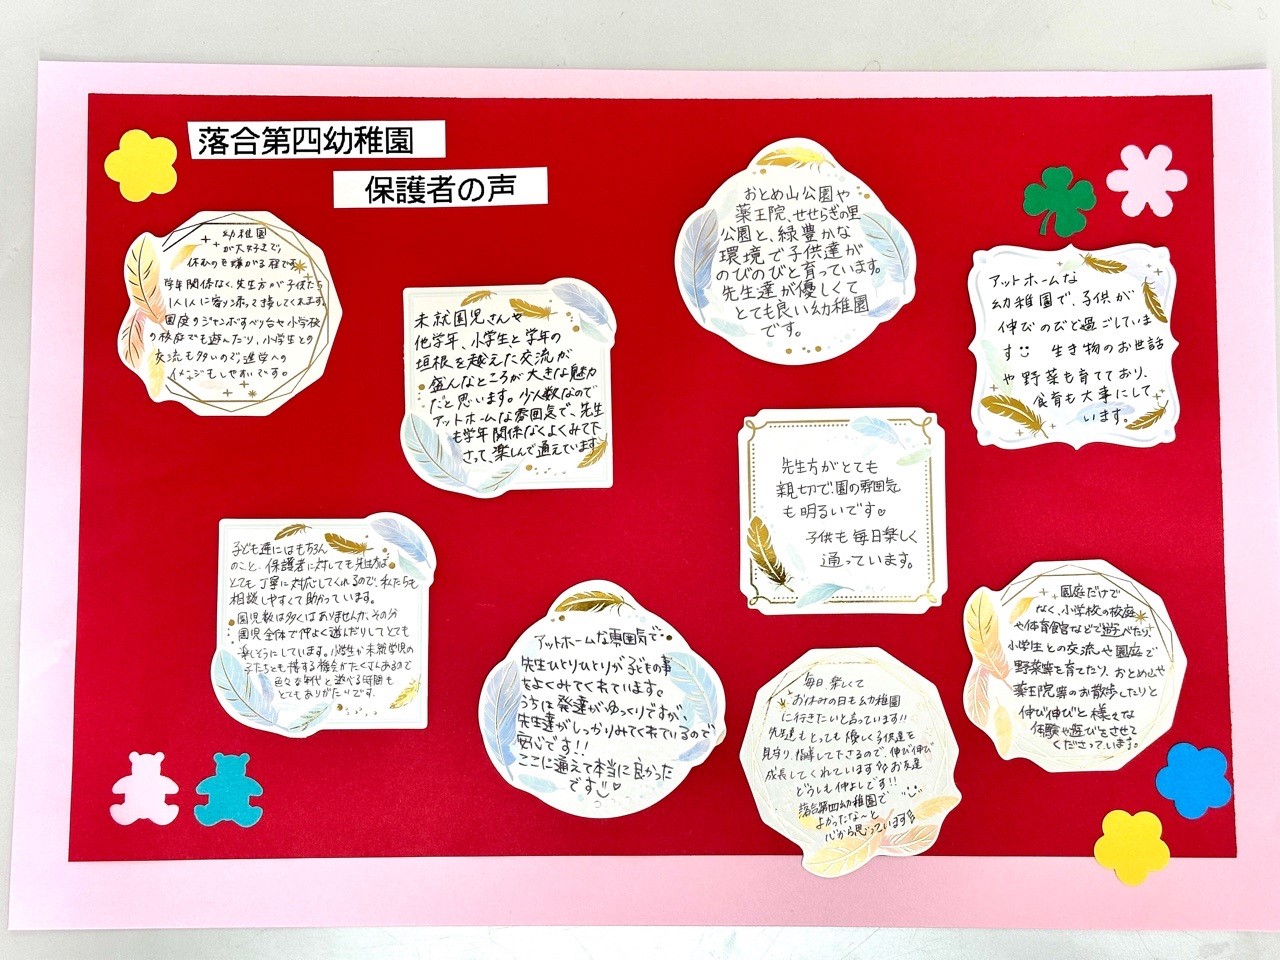 落合第四幼稚園
保護者の声
幼稚園
が大好きで、
休むのを嫌がる程です。
学年関係なく、先生方が子供たち
1人1人に寄り添って接してくれます。
園庭のジャンボすべり台や小学校
の校庭でも遊んだり、小学生との
交流も多いので進学への
イメージもしやすいです。
未就園児さんや
他学年、小学生と学年の
垣根を越えた交流が
盛んなところが大きな魅力
だと思います。少人数なので
アットホームな雰囲気で、先生
も学年関係なくよくみて下
さって、楽しんで通えています。
おとめ山公園や
薬王院、せせらぎの里
公園と、緑豊かな
環境で子供達が
のびのびと育っています。
先生達が優しくて
とても良い幼稚園
です。
アットホームな
幼稚園で、子供が
伸びのびと過ごしていま
す 生き物のお世話
や野菜も育てており、
食育も大事にして
います。
先生方がとても
親切で、園の雰囲気
も明るいです♡
子供も毎日楽しく
通っています。
子ども達にはもちろん
のこと、保護者に対しても先生方は
とても丁寧に対応してくれるので、私たちも
相談しやすくて助かっています。
園児数は多くはありませんが、その分
園児全体で仲よく遊んだりしてとても
楽しそうにしています。小学生や未就学児の
子たちとも接する機会がたくさんあるので
色々な年代と遊べる時間も
とてもありがたいです。
アットホームな雰囲気で、
先生ひとりひとりが子どもの事
をよくみてくれています。
うちは発達がゆっくりですが、
先生達がしっかりみてくれているので
安心です!!
ここに通えて本当に良かった
です♡
毎日楽しくて
お休みの日も幼稚園
に行きたいと言っています!!
先生達もとっても優しく子供達を
見守り、指導して下さるので、伸び伸び
成長してくれています お友達
どうしも仲よしです!!
落合第四幼稚園で
よかったな〜と
心から思っています
園庭だけで
なく、小学校の校庭
や体育館などで遊べたり、
小学生との交流や園庭で
野菜等を育てたり、おとめ山や
薬王院等のお散歩したりと
伸び伸びと様々な
体験や遊びをさせて
くださっています。